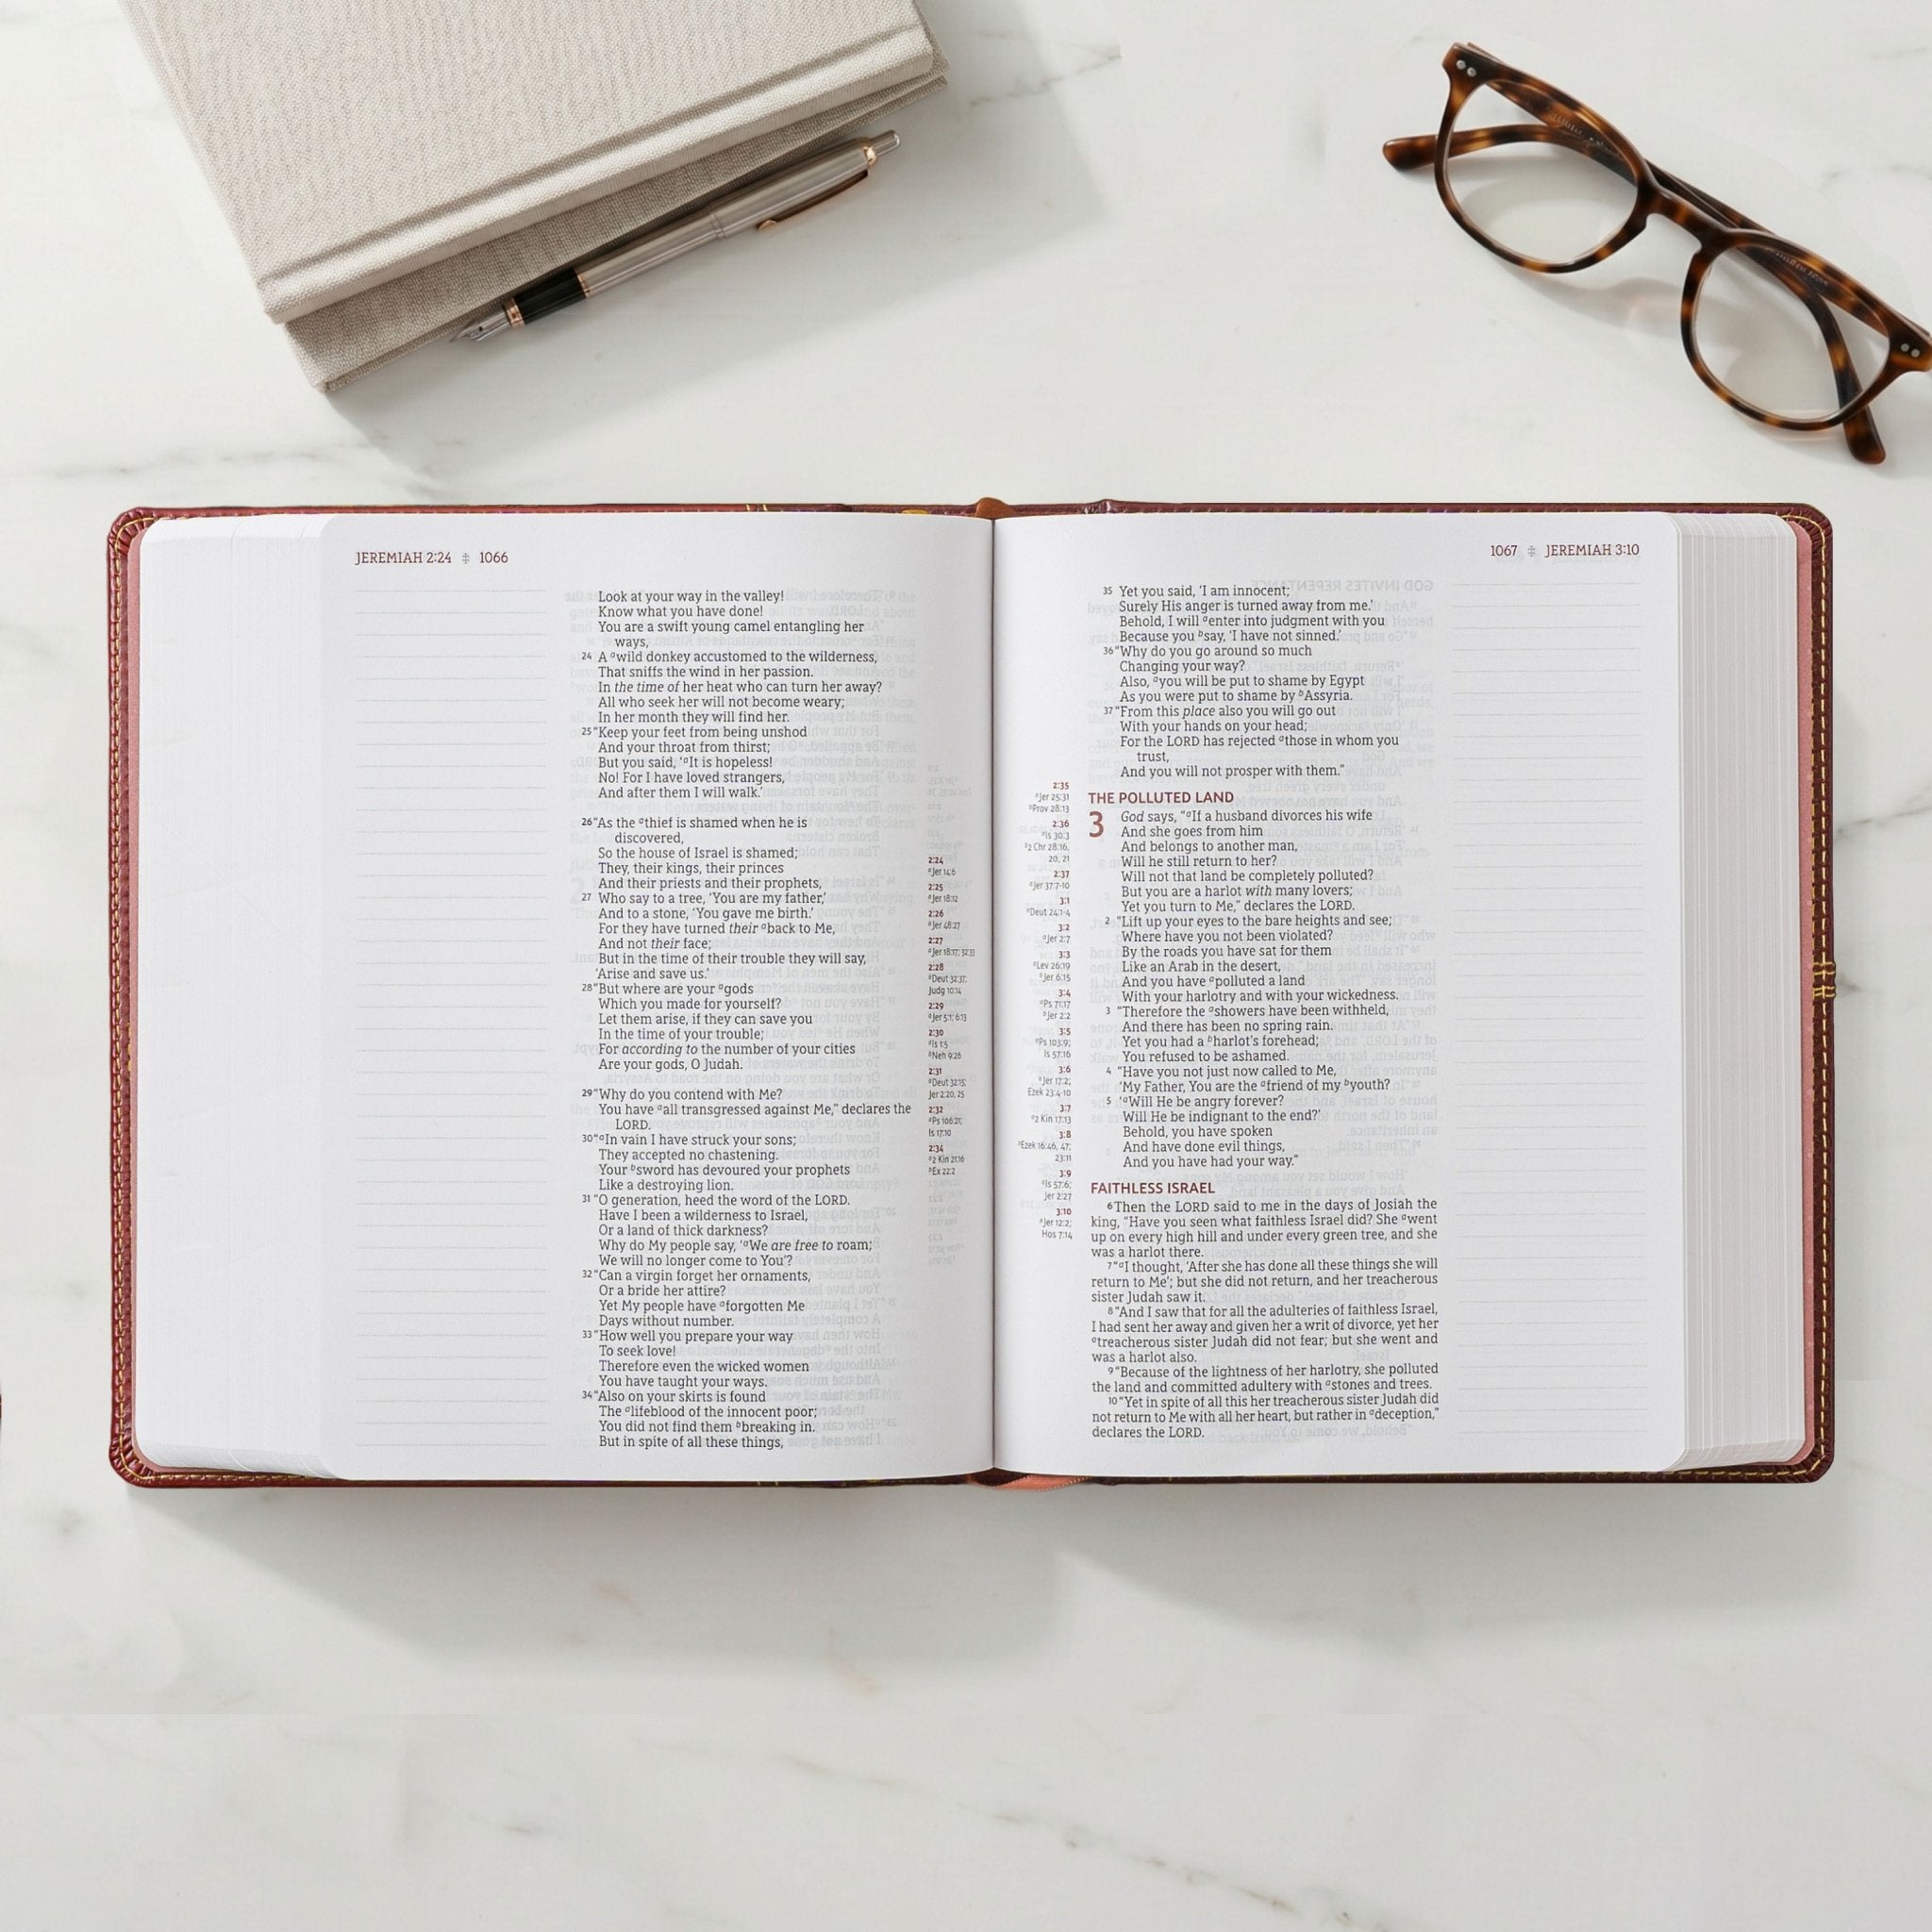 JEREMIAH 2:24 ✢ 1066
Look at your way in the valley!
Know what you have done!
You are a swift young camel entangling her
ways,
24 A ᵃwild donkey accustomed to the wilderness,
That sniffs the wind in her passion.
In the time of her heat who can turn her away?
All who seek her will not become weary;
In her month they will find her.
25 "Keep your feet from being unshod
And your throat from thirst;
But you said, 'ᵃIt is hopeless!
No! For I have loved strangers,
And after them I will walk.'
26 "As the ᵃthief is shamed when he is
discovered,
So the house of Israel is shamed;
They, their kings, their princes
And their priests and their prophets,
27 Who say to a tree, 'You are my father,'
And to a stone, 'You gave me birth.'
For they have turned their ᵃback to Me,
And not their face;
But in the time of their trouble they will say,
'Arise and save us.'
28 "But where are your ᵃgods
Which you made for yourself?
Let them arise, if they can save you
In the time of your trouble;
For according to the number of your cities
Are your gods, O Judah.
29 "Why do you contend with Me?
You have ᵃall transgressed against Me," declares the
LORD.
30 "ᵃIn vain I have struck your sons;
They accepted no chastening.
Your ᵇsword has devoured your prophets
Like a destroying lion.
31 "O generation, heed the word of the LORD.
Have I been a wilderness to Israel,
Or a land of thick darkness?
Why do My people say, 'ᵃWe are free to roam;
We will no longer come to You'?
32 "Can a virgin forget her ornaments,
Or a bride her attire?
Yet My people have ᵃforgotten Me
Days without number.
33 "How well you prepare your way
To seek love!
Therefore even the wicked women
You have taught your ways.
34 "Also on your skirts is found
The ᵃlifeblood of the innocent poor;
You did not find them ᵇbreaking in.
But in spite of all these things,
2:24
ᵃJer 14:6
2:25
ᵃJer 18:12
2:26
ᵃJer 48:27
2:27
ᵃJer 18:17; 32:33
2:28
ᵃDeut 32:37;
Judg 10:14
2:29
ᵃJer 5:1; 6:13
2:30
ᵃIs 1:5
ᵇNeh 9:26
2:31
ᵃDeut 32:15;
Jer 2:20, 25
2:32
ᵃPs 106:21;
Is 17:10
2:34
ᵃ2 Kin 21:16
ᵇEx 22:2
1067 ✢ JEREMIAH 3:10
35 Yet you said, 'I am innocent;
Surely His anger is turned away from me.'
Behold, I will ᵃenter into judgment with you
Because you ᵇsay, 'I have not sinned.'
36 "Why do you go around so much
Changing your way?
Also, ᵃyou will be put to shame by Egypt
As you were put to shame by ᵇAssyria.
37 "From this place also you will go out
With your hands on your head;
For the LORD has rejected ᵃthose in whom you
trust,
And you will not prosper with them."
THE POLLUTED LAND
3 God says, "ᵃIf a husband divorces his wife
And she goes from him
And belongs to another man,
Will he still return to her?
Will not that land be completely polluted?
But you are a harlot with many lovers;
Yet you turn to Me," declares the LORD.
2 "Lift up your eyes to the bare heights and see;
Where have you not been violated?
By the roads you have sat for them
Like an Arab in the desert,
And you have ᵃpolluted a land
With your harlotry and with your wickedness.
3 "Therefore the ᵃshowers have been withheld,
And there has been no spring rain.
Yet you had a ᵇharlot's forehead;
You refused to be ashamed.
4 "Have you not just now called to Me,
'My Father, You are the ᵃfriend of my ᵇyouth?
5 'ᵃWill He be angry forever?
Will He be indignant to the end?'
Behold, you have spoken
And have done evil things,
And you have had your way."
FAITHLESS ISRAEL
6 Then the LORD said to me in the days of Josiah the
king, "Have you seen what faithless Israel did? She ᵃwent
up on every high hill and under every green tree, and she
was a harlot there.
7 "ᵃI thought, 'After she has done all these things she will
return to Me'; but she did not return, and her treacherous
sister Judah saw it.
8 "And I saw that for all the adulteries of faithless Israel,
I had sent her away and given her a writ of divorce, yet her
ᵃtreacherous sister Judah did not fear; but she went and
was a harlot also.
9 "Because of the lightness of her harlotry, she polluted
the land and committed adultery with ᵃstones and trees.
10 "Yet in spite of all this her treacherous sister Judah did
not return to Me with all her heart, but rather in ᵃdeception,"
declares the LORD.
2:35
ᵃJer 25:31
ᵇProv 28:13
2:36
ᵃIs 30:3
ᵇ2 Chr 28:16,
20, 21
2:37
ᵃJer 37:7-10
3:1
ᵃDeut 24:1-4
3:2
ᵃJer 2:7
3:3
ᵃLev 26:19
ᵇJer 6:15
3:4
ᵃPs 71:17
ᵇJer 2:2
3:5
ᵃPs 103:9;
Is 57:16
3:6
ᵃJer 17:2;
Ezek 23:4-10
3:7
ᵃ2 Kin 17:13
3:8
ᵃEzek 16:46, 47;
23:11
3:9
ᵃIs 57:6;
Jer 2:27
3:10
ᵃJer 12:2;
Hos 7:14